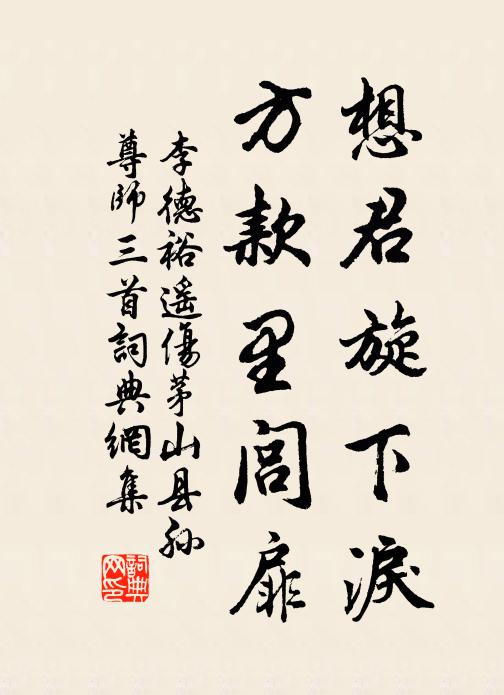 想君旋下淚
方款里閭扉
李德裕遥傷茅山县孙
尊師三首詞典網集
詞典
网印